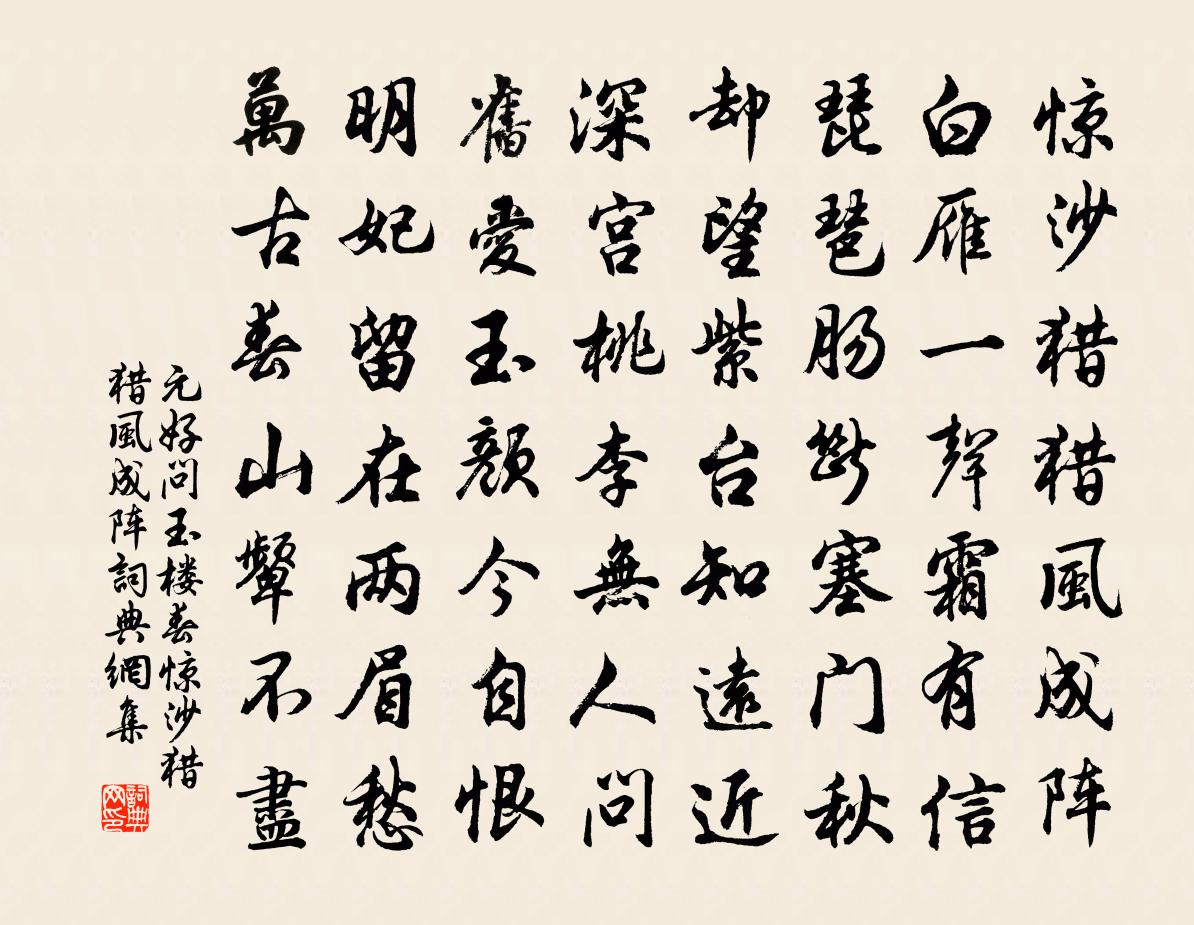 惊沙猎猎風成阵
白雁一聲霜有信
琵琶肠断塞门秋
却望紫台知遠近
深宫桃李無人問
舊愛玉颜今自恨
明妃留在两眉愁
萬古春山颦不盡
元好问玉楼春惊沙猎
猎風成阵詞典網集
詞典网印